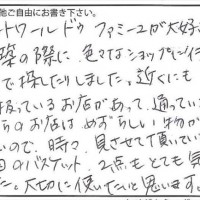 他ご自由にお書き下さい。
ートワールドゥ ファミーユが大好き
築の際に、色々なショップやバイ
で探したりしました。近くにも
扱っているお店があって、通ってい
らのお店はめずらしい物が
いので、時々、見させて頂いてい
回のバスケット、2点もとても気
た。大切に使いたいと思います。